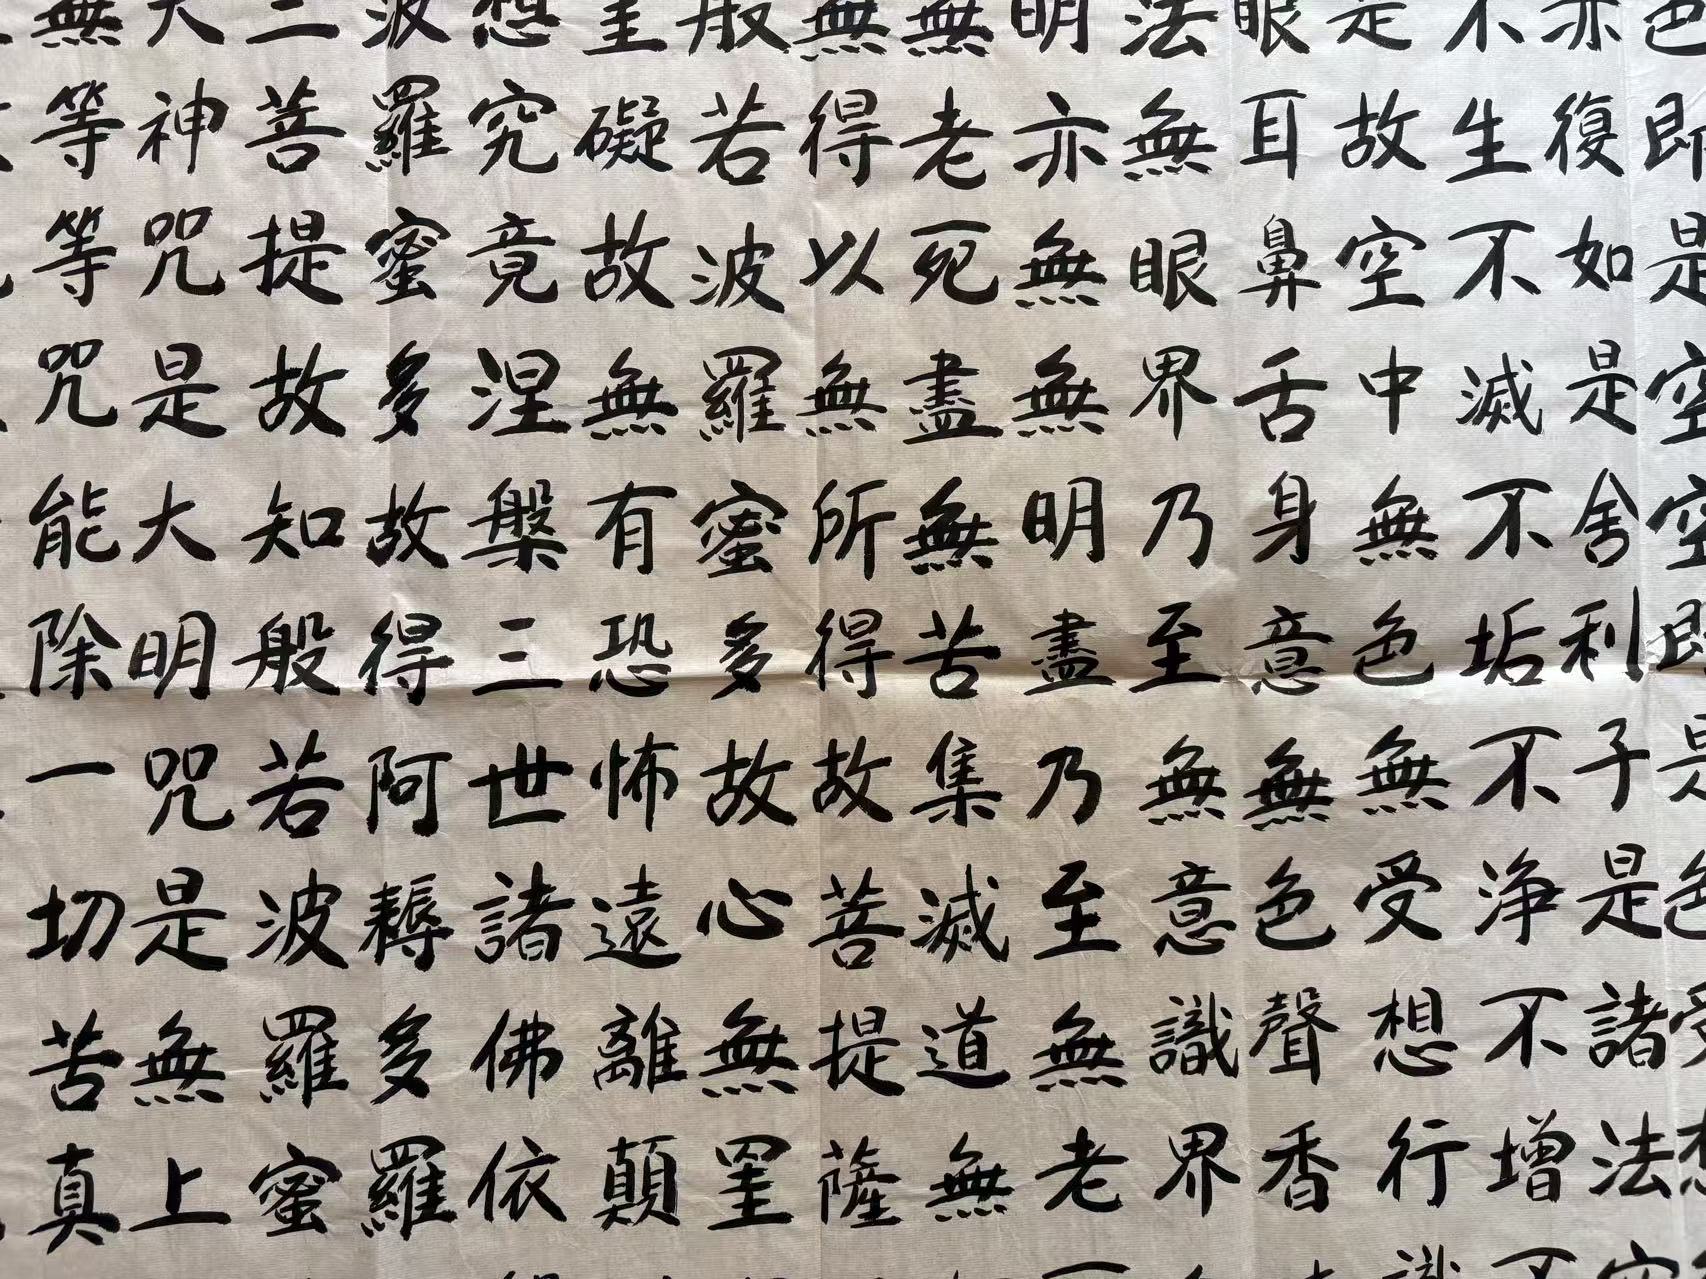 色即是空空即是色受想
亦復如是舍利子是諸法空
不生不滅不垢不净不增不
是故空中無色無受想行識
眼耳鼻舌身意無色聲香
法無眼界乃至無意識界
明亦無無明盡乃至無老
無老死盡無苦集滅道無
無得以無所得故菩提薩
般若波羅蜜多故心無罣
罣礙故無有恐怖遠離顛
想究竟涅槃三世諸佛依
波羅蜜多故得阿耨多羅
三菩提故知般若波羅蜜
大神咒是大明咒是無上
無等等咒能除一切苦真